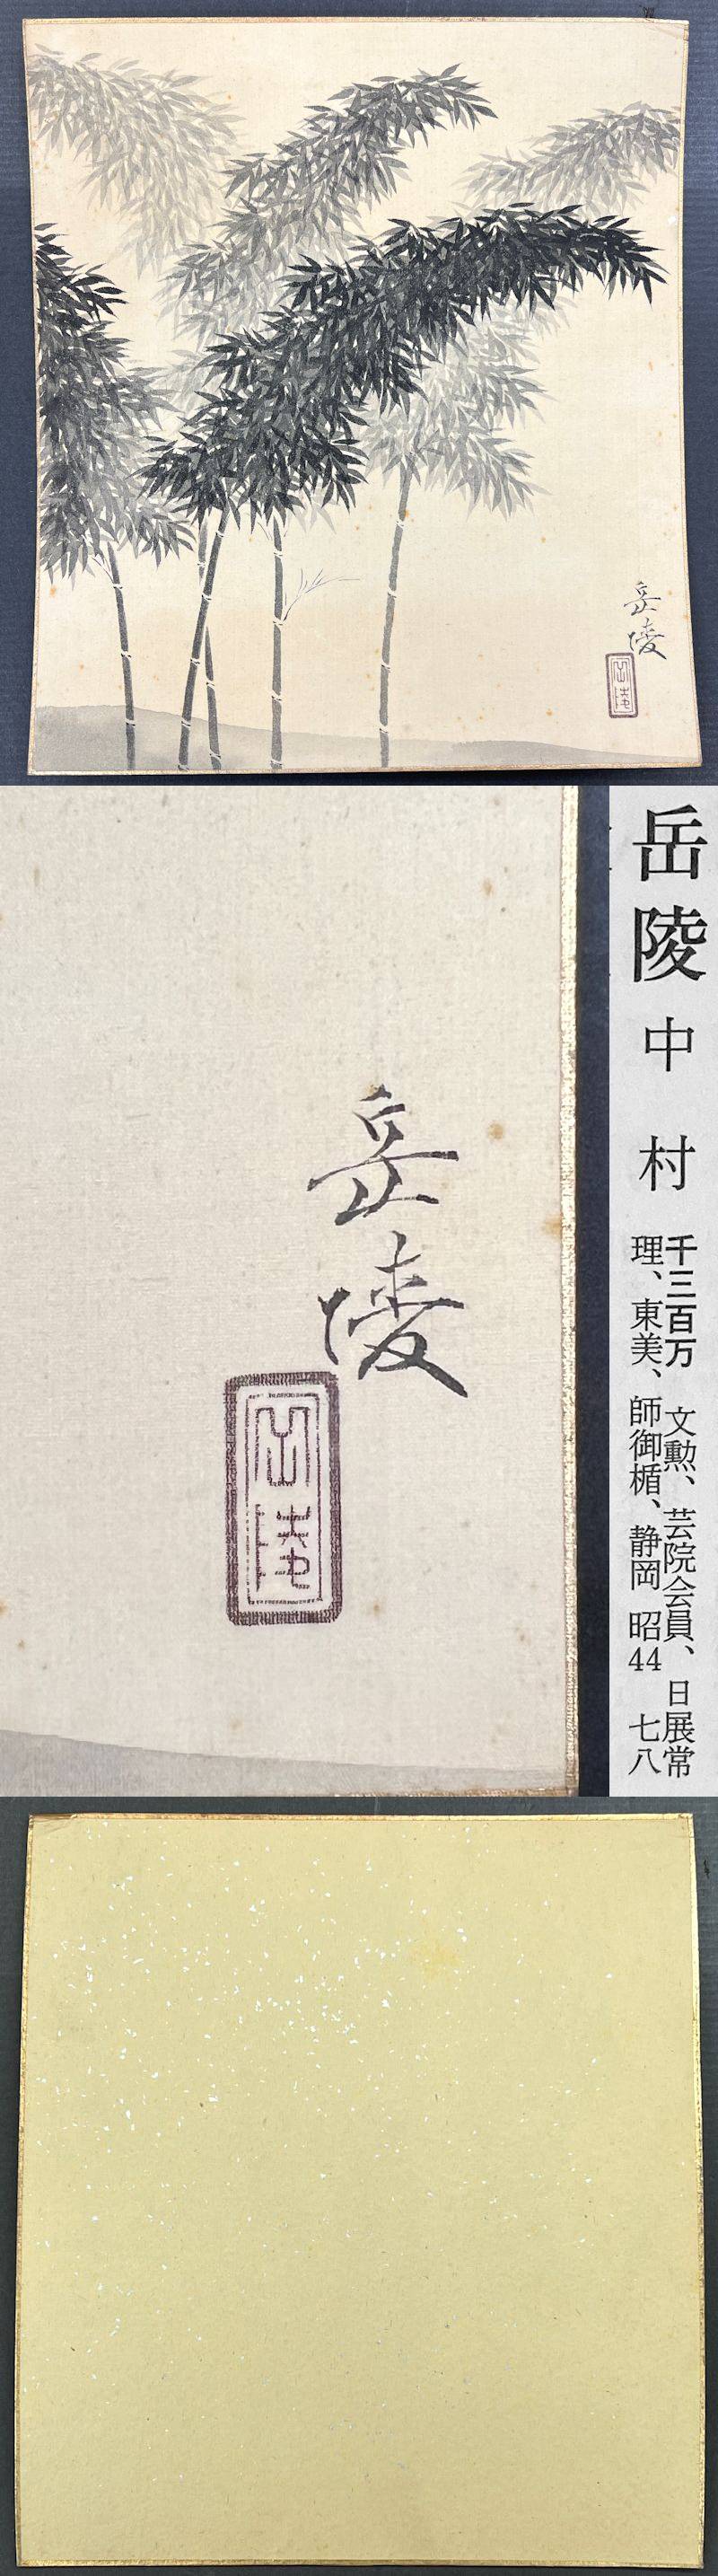 岳陵
岳陵
岳陵
岳陵
岳陵 中村
千三百万 文勲、芸院会員、日展常
理、東美、師御楯、静岡 昭44 七八